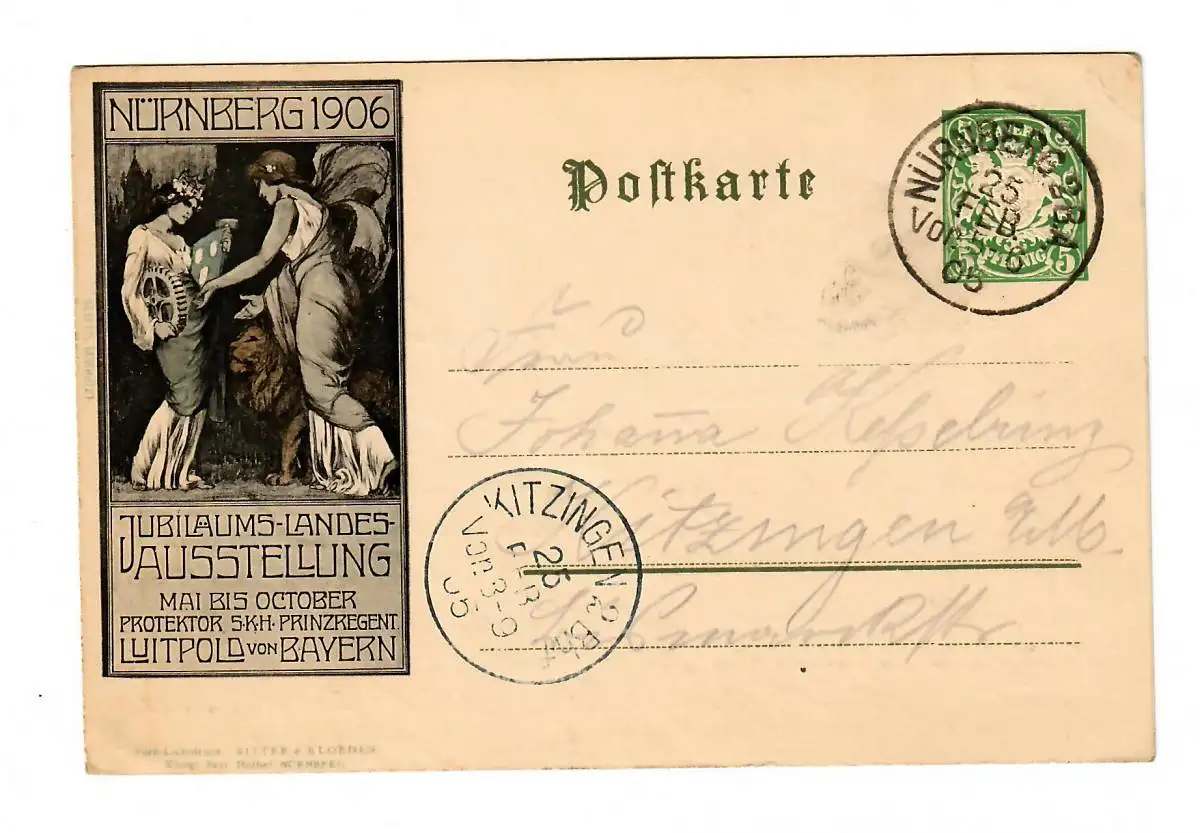 NÜRNBERG 1906
JUBILÄUMS-LANDES-
AUSSTELLUNG
MAI BIS OCTOBER
PROTEKTOR S.K.H. PRINZREGENT
LUITPOLD VON BAYERN
RITTER & KLOEDEN
NÜRNBERG
Postkarte
BAYERN
5 5
PFENNIG
NÜRNBERG 2 B.A.
25
FEB
Vor.
06
Frau
Johanna Kesselring
Kitzingen a/M.
KITZINGEN 2 Bhf
25
FEB
Vor. 8-9